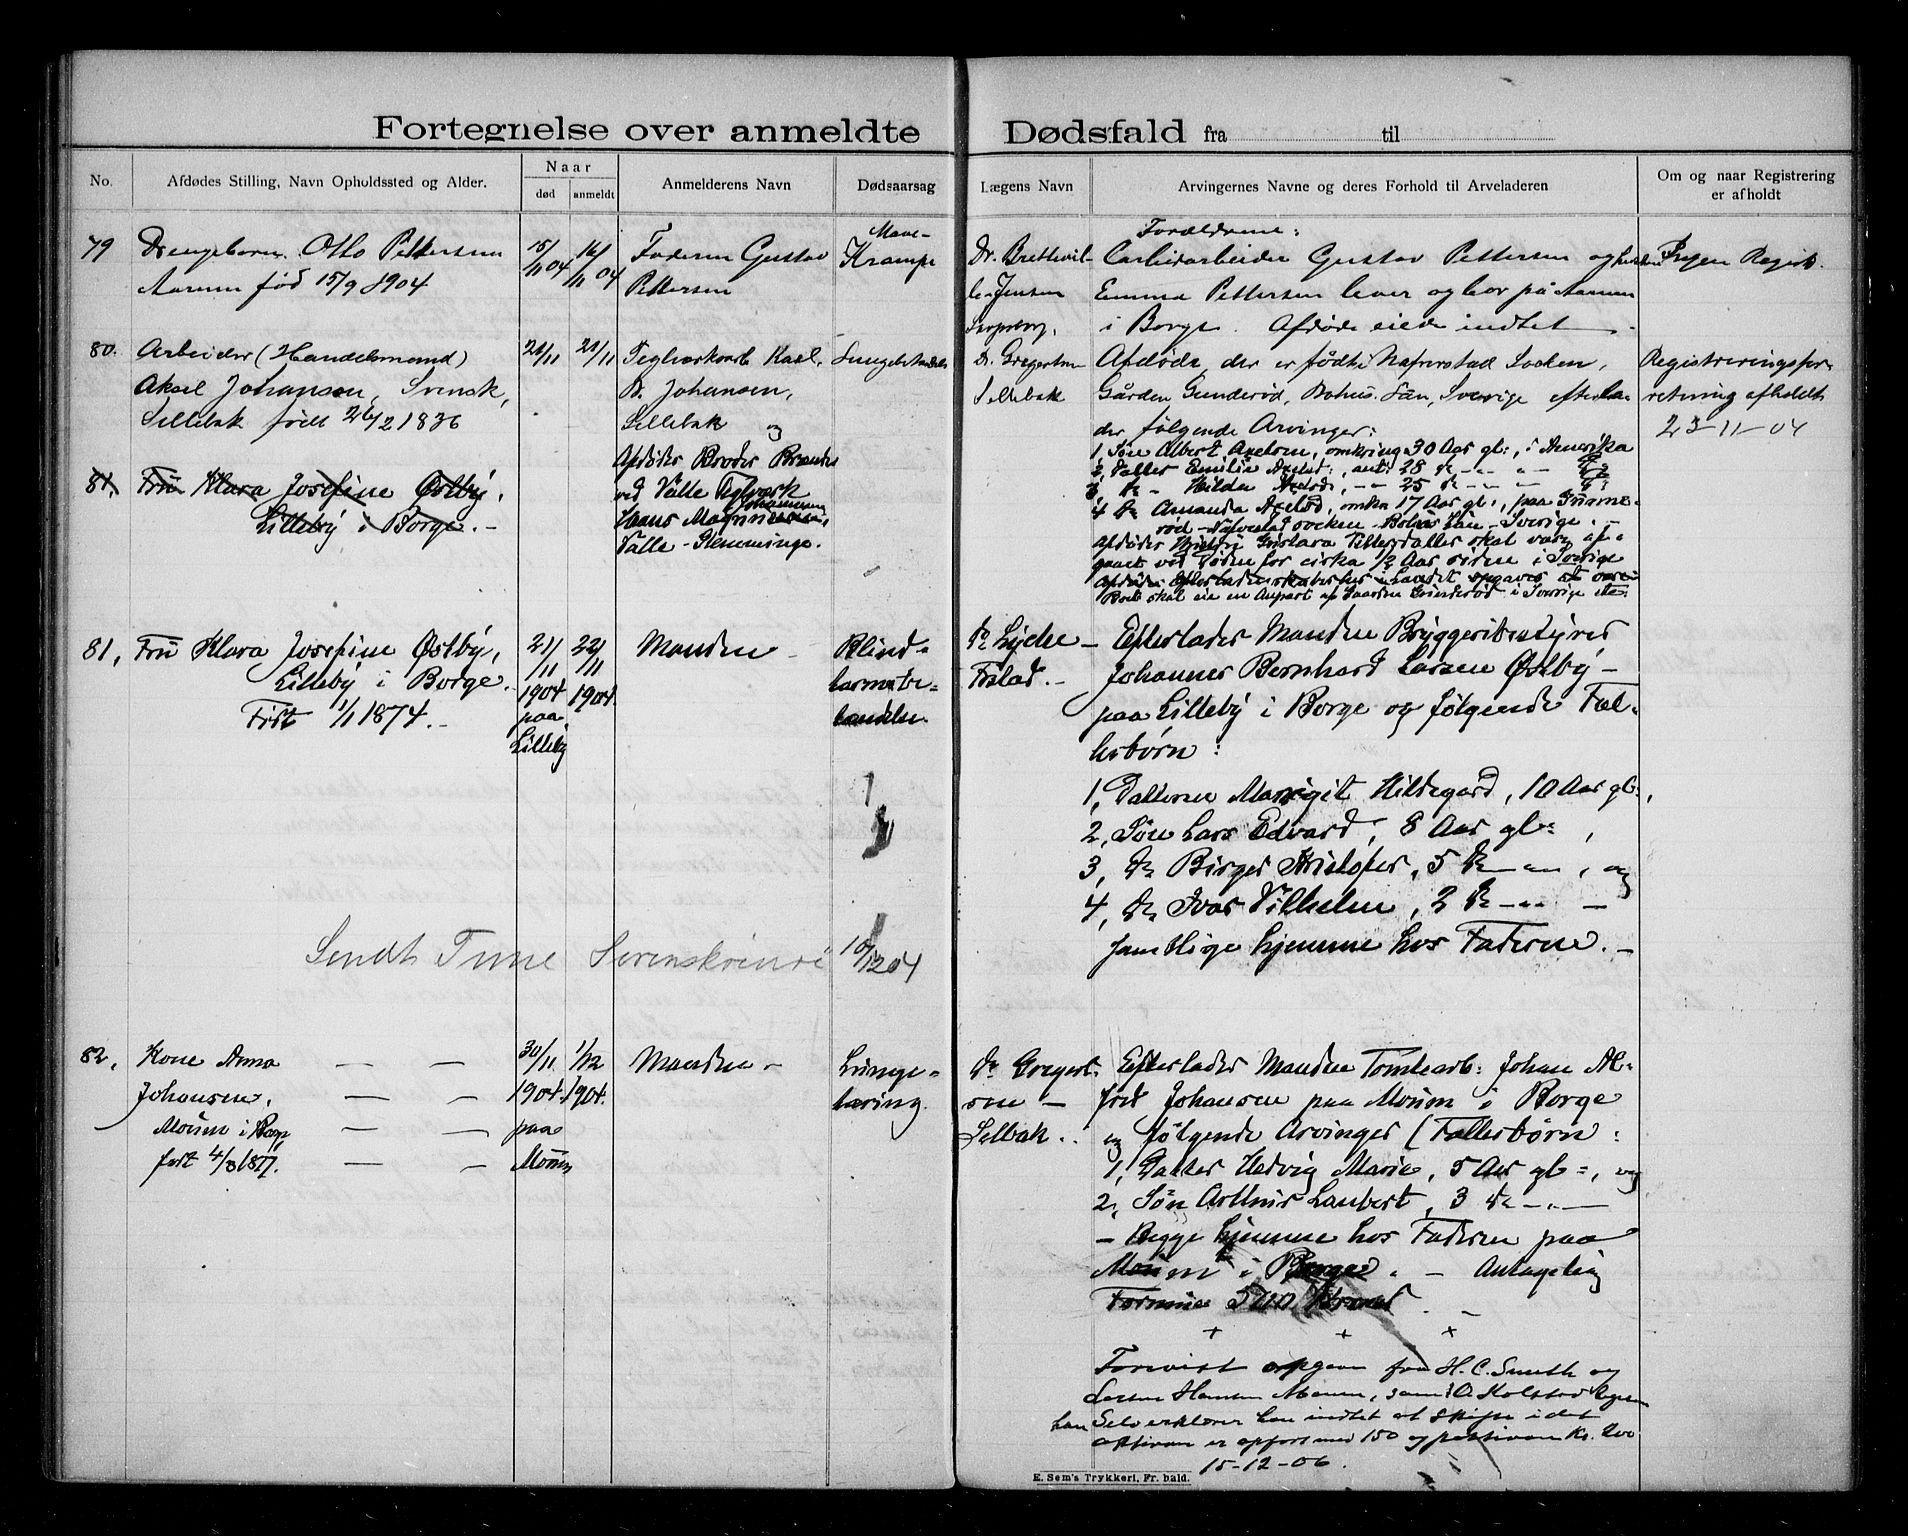 Fortegnelse over anmeldte Dødsfald fra til
No.
Afdødes Stilling, Navn Opholdssted og Alder.
Naar
død
anmeldt
Anmelderens Navn
Dødsaarsag
Lægens Navn
Arvingernes Navne og deres Forhold til Arveladeren
Om og naar Registrering
er afholdt
79
Drengebarn Otto Pettersen
Aarum fød 15/9 1904
15/11 04
16/11 04
Faderen Gustav
Pettersen
Mave-
Krampe
Dr. Brettevil-
le Jensen
Sarpsborg.
Forældrene:
Carbidarbeider Gustav Pettersen og
Emma Pettersen lever og bor på Aarum
i Borge. Afdøde eiede indtet
Ingen Registr.
80.
Arbeider (Handelsmand)
Aksel Johansen, Svensk,
Sellebak født 26/2 1836
21/11
21/11
Teglverksarb. Karl
B. Johansen,
Sellebak og
Afdødes Broder
ved Valle Teglverk
Hans Magnus Johannesen,
Valle - Glemminge.
Lungebetændelse
Dr. Gregertsen
Sellebak
Afdøde, der er født i Socken,
Gården Gunderød, Bohus Län, Sverige efterla-
der følgende Arvinger:
1, Søn Albert Axelsen, omkring 30 Aar gl:, i Amerika
2, Datter Emilie Axelsd:, ant: 28 do - " -
3, do - Hilda Axelsd:, - " - 25 do - " -
4 do Amanda Axelsd, omkr. 17 Aar gl:, paa
rød - Socken - Bohus Län - Sverige. -
Afdødes Pettersdatter skal være af-
gaaet ved Døden for cirka 1/2 Aar siden i Sverige
Boet skal eie en Anpart af Gaarden Gunderød i Sverige
Registreringsfor-
retning afholdt
23-11-04
81. Frü Klara Josefine Østby,
Lilleby i Borge. -
81, Frü Klara Josefine Østby,
Lilleby i Borge.
Født 1/1 1874. -
21/11
1904
paa
Lilleby
22/11
1904.
Manden -
Blind-
tarmbe-
tændelse.
Dr. Lyche -
Fr.stad. -
Efterlader Manden Bryggeribestyrer
Johannes Bernhard Larsen Østby -
paa Lilleby i Borge og følgende Fæl-
lesbørn:
1, Datteren Margit Hildegard, 10 Aar gl:,
2, Søn Lars Edvard, 8 Aar gl: ,
3, do Birger Kristofer, 5 do - " - , og
4, do Ivar Vilhelm, 2 do - " - -
samtlige hjemme hos Faderen. -
Sendt Tune Sorenskriveri 10/12 04
82,
Kone Anna
Johansen,
Moum i Borge,
født 4/3 1877.
30/11
1904
paa
Moum
1/12
1904.
Manden -
Lunge-
tæring.
Dr. Gregert-
sen -
Selbak.
Efterlader Manden Tomtearb: Johan Al-
fred Johansen paa Moum i Borge
og følgende Arvinger (Fællesbørn:
1, Datter Hedvig Marie, 5 Aar gl:, og
2, Søn Arthur Lambert, 3 do - " -
- Begge hjemme hos Faderen paa
Moum i Borge. - Antagelig
Formue 500 Kroner. -
+ + +
Forevist opgave fra H. C. Smith og
Hansen Moum, samt O Kolstad
han Selverklærer han indtet at skifte i det
aktivan er opført med 150 og passivan Kr. 200
15-12-06.
E. Sem's Trykkeri, Fr. hald.